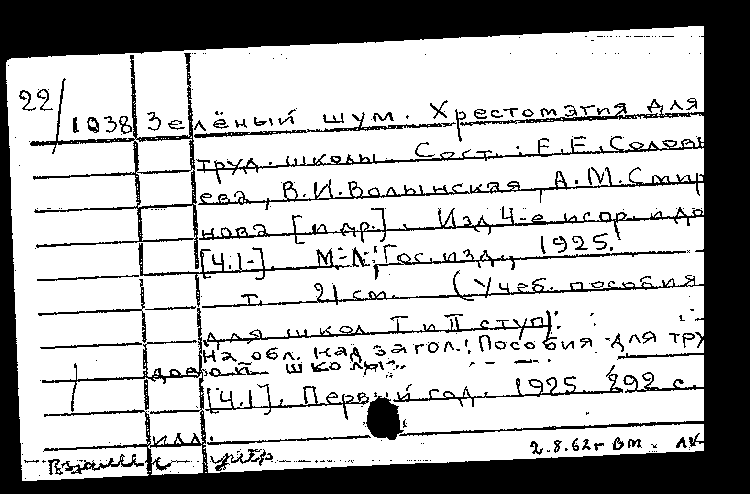 22/1038 Зелёный шум. Хрестоматия для
труд. школы. Сост.: Е.Е. Соловь
ева, В.И. Волынская, А.М. Смир
нова [и др.]. Изд 4-е испр. и до
[Ч.1-]. М.-Л., Гос. изд., 1925.
т. 21 см. (Учеб. пособия
для школ I и II ступ).
На обл. над загол.: Пособия для тру
довой школы.
1 [Ч.1]. Первый год. 1925. 292 с.
илл.
2.8.62г Вт. ЛК